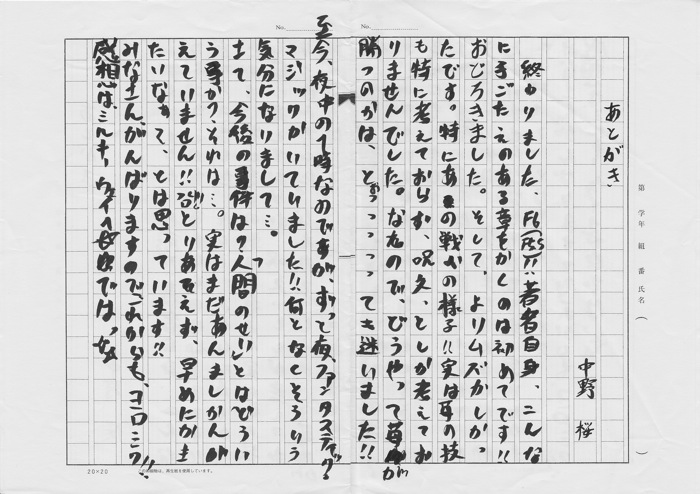 あとがき
中野 桜
終わりました、F6(FSS)!! 著者自身、こんな
に手ごたえのある章をかくのは初めてです!!
おどろきました。そして、よりムズかしかっ
たです。特にあの戦いの様子!! 実は耳の技
も特に考えておらず、呪文、としか考えてお
りませんでした。なので、どうやって苺が
勝つのかは、とぉっっっっても迷いました!!
至今、夜中の1時なのですが、ずっと夜、ファンタスティック
マジックかいていました!! 何となくそういう
気分になりまして…。
さて、今後の事件は?「人間のせい」とはどうい
う事か? それは…。実はまだあんましかんが
えていません!! とりあえず、早めにかき
たいなぁて、とは思っています!!
みなさん、がんばりますのでこれからも、ヨロシク!!
感想は、ミルキーウェイへ では、
No.
No.
第 学年 組 番 氏名 ( )
20×20